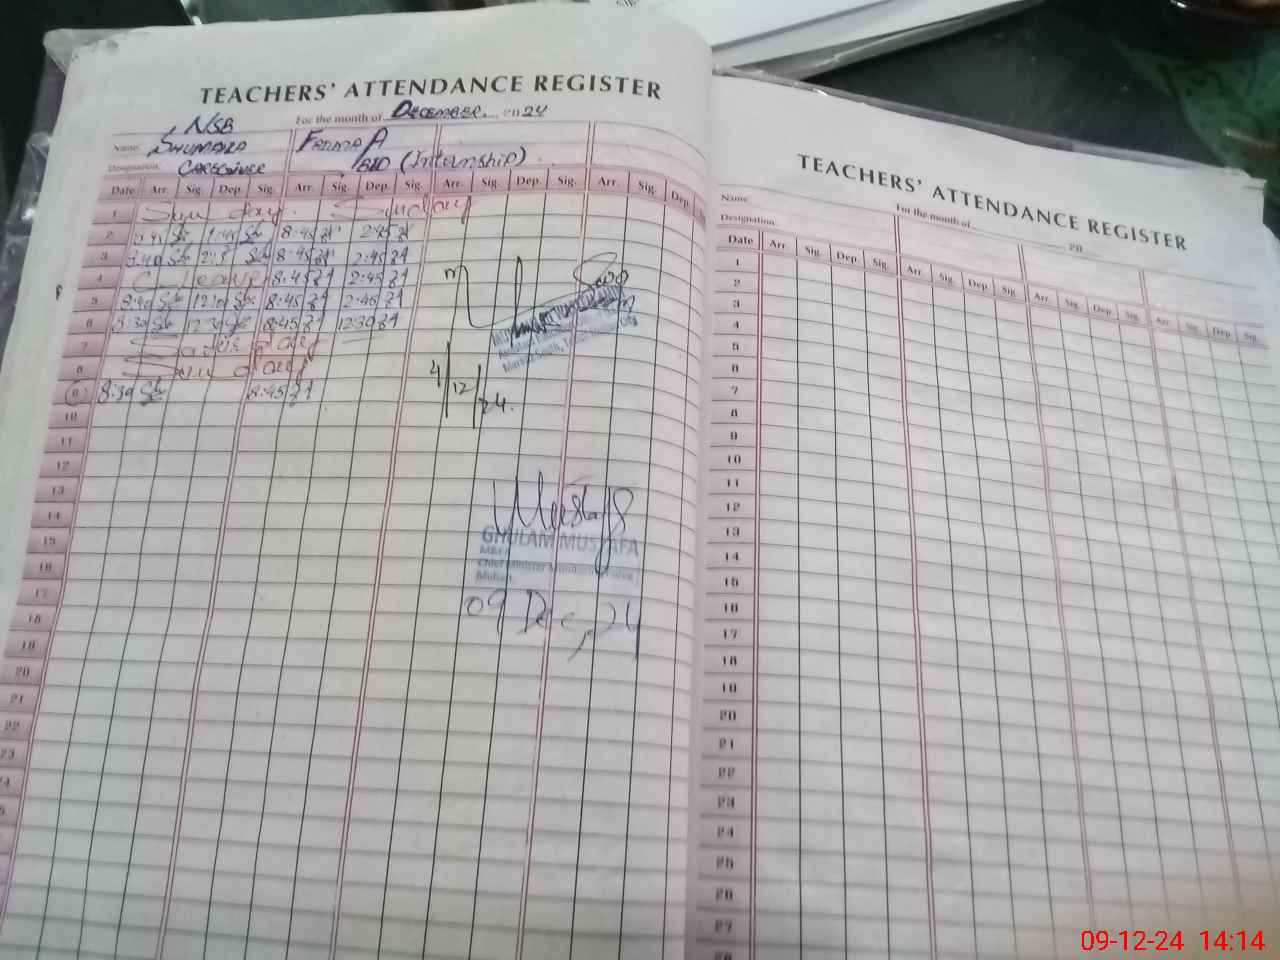 TEACHERS' ATTENDANCE REGISTER
For the month of DECEMBER 2024
NSB
Name SHUMAILA FATIMA
Designation CAREGIVER (Internship)
Date Arr. Sig. Dep. Sig. Arr. Sig. Dep. Sig. Arr. Sig. Dep. Sig. Arr. Sig. Dep.
1 Sunday Sunday
2 1:40 8:45 2:45
3 8:40 8:45 2:45
4 C leave 8:45 2:45
5 8:40 12:10 8:45 2:45
6 8:30 12:30 8:45 12:30
7 Saturday
8 Sunday
9 8:30 8:45
10
11
12
13
14
15
16
17
18
19
20
21
22
23
4/12/24.
GHULAM MUSTAFA
MEA
Chief Minister Monitoring Force
Multan
09 Dec, 24
TEACHERS' ATTENDANCE REGISTER
For the month of 20
Name
Designation
Date Arr. Sig. Dep. Sig. Arr. Sig. Dep. Sig. Arr. Sig. Dep. Sig. Arr. Sig. Dep. Sig.
1
2
3
4
5
6
7
8
9
10
11
12
13
14
15
16
17
18
19
20
21
22
23
24
25
26
27
09-12-24 14:14